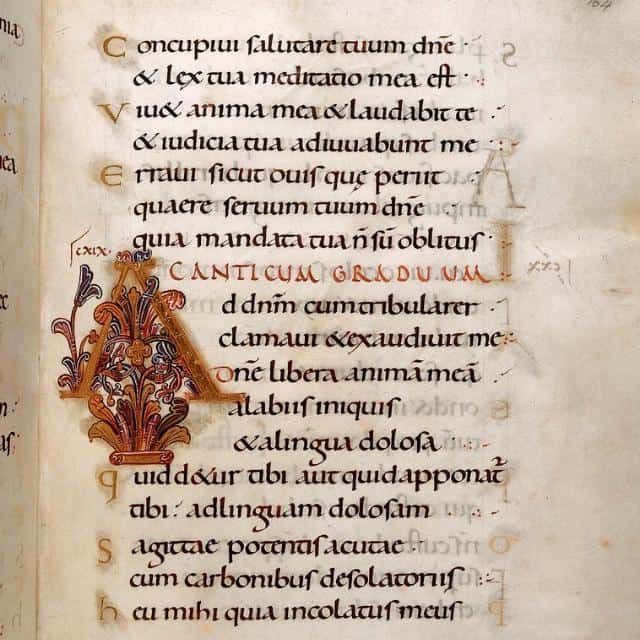 Concupiui salutare tuum dnē
& lex tua meditatio mea est
Viu& anima mea & laudabit te
& iudicia tua adiuuabunt me
Erraui sicut ouis quę periit
quaere seruum tuum dnē
quia mandata tua ñ sū oblitus
cxix
CANTICUM GRADUUM
Ad dnm̄ cum tribularer
clamaui & exaudiuit me
Dnē libera animā meā
alabiis iniquis
& alingua dolosa
quid d&ur tibi aut quid apponat̄
tibi adlinguam dolosam
Sagittae potentis acutae
cum carbonibus desolatoriis
heu mihi quia incolatus meus